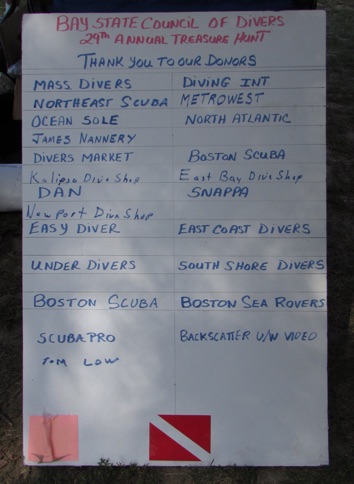 BAY STATE COUNCIL OF DIVERS
29th ANNUAL TREASURE HUNT
THANK YOU TO OUR DONORS
MASS DIVERS DIVING INT
NORTHEAST SCUBA METROWEST
OCEAN SOLE NORTH ATLANTIC
JAMES NANNERY
DIVERS MARKET BOSTON SCUBA
Kalipso Dive Shop East Bay Dive Shop
DAN SNAPPA
New Port Dive Shop
EASY DIVER EAST COAST DIVERS
UNDER DIVERS SOUTH SHORE DIVERS
BOSTON SCUBA BOSTON SEA ROVERS
SCUBAPRO BACKSCATTER U/W VIDEO
TOM LOW